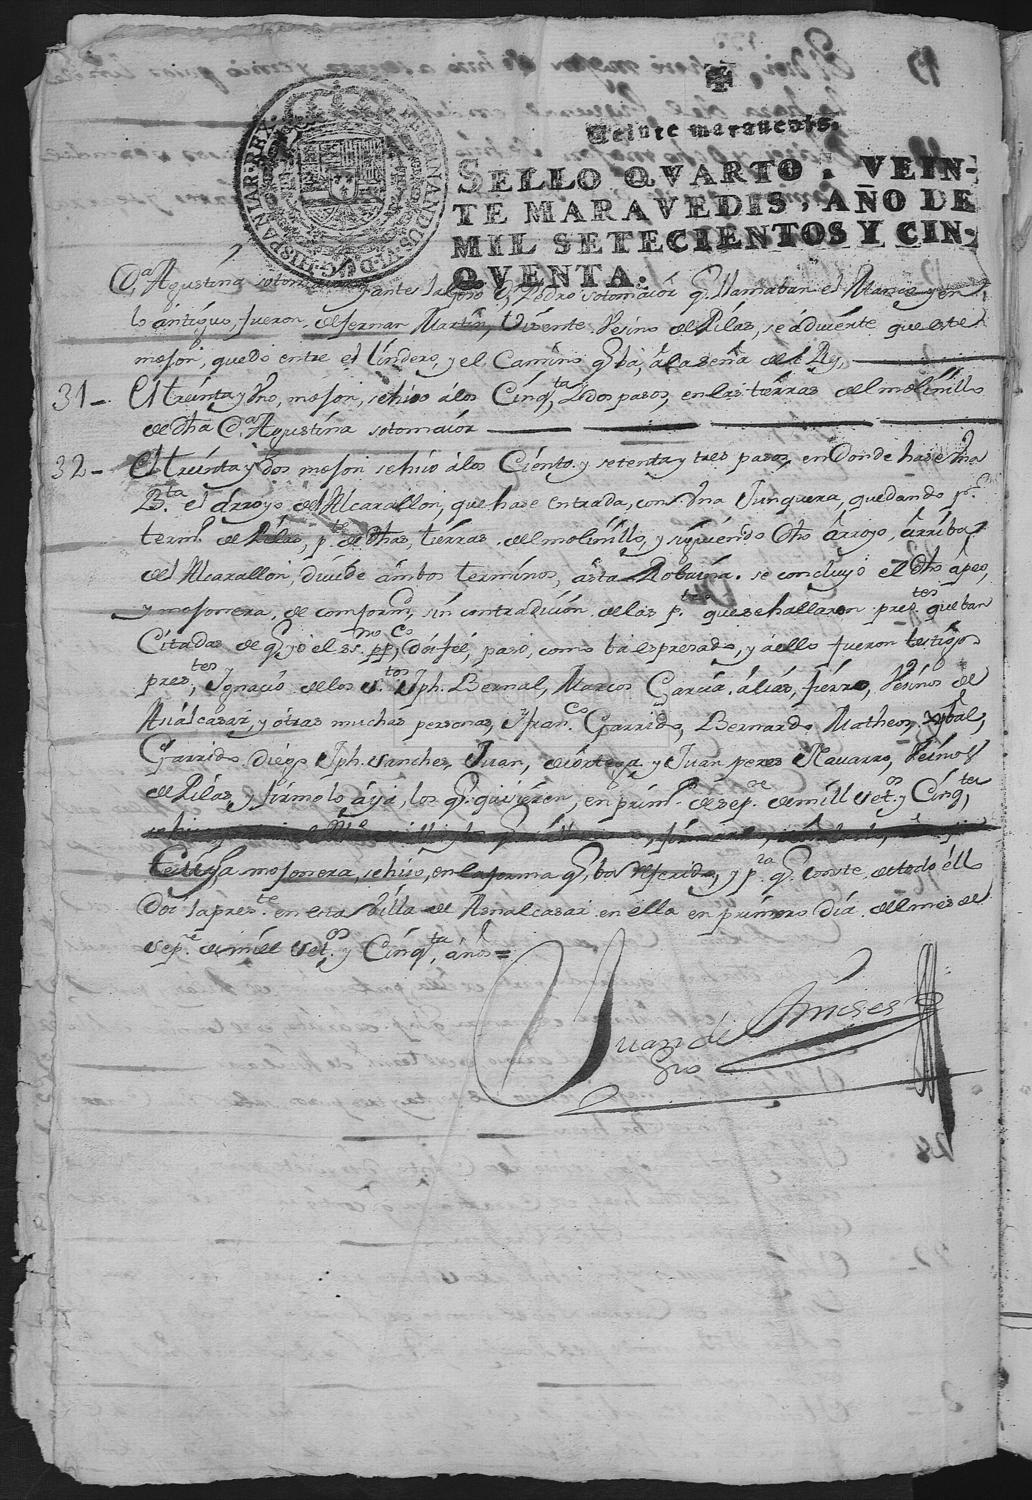 Veinte maravedis.
SELLO QVARTO, VEIN-
TE MARAVEDIS, AÑO DE
MIL SETECIENTOS Y CIN-
QVENTA.
FERDINANDUS VI D G HISPANIAR REX
D.ª Agustina sotomaior y antes la goso D. Pedro sotomaior q. llamaban el Manco, y en
lo antiguo, fueron, de fernan Martin, Visente Vesino de Pilas, se advierte que este
mojon, quedo entre el lindero, y el Camino q. ba, a la señá del Rey,
31- El treinta y Vno, mojon, se hiso á los Cinq.ta y dos pasos, en las tierras del molinillo
de dha D.ª Agustina sotomaior
32- El treinta y dos mojon se hiso á los Ciento y setenta y tres pasos, en donde hase Vna
B.ta el Arroyo del Alcarallon, que hase entrada, con Vna Junquera, quedando p.r
term.o de Pilas, p.te de dhas, tierras del molinillo, y siguiendo dho arroyo, arriba
del Alcarallon, divide ambos terminos, asta Robaina. se concluyo el dho apeo,
y mojonera, de conform.d, sin contradicion de las p.tes que se hallaron pres.tes que ban
Citadas de q. yo el ss.no pp.co Doi feé, paso, como ba espresado, y a ello fueron testigos
pres.tes, Ygnacio de los s.tos y Jph. Bernal, Marcos Garcia, alias, fierro, Vesinos de
Asnalcasar, y otras muchas personas, y fran.co Garrido, Bernardo Matheos, xptbal,
Garrido Diego Jph. sanches, Juan, de ortega, y Juan peres Navarro, Vesinos
de Pilas, y firmolo aqui, los q. quisieren, en prim.o de sep.re de mill set.os y Cinq.ta
Cuya mojonera, se hiso, en la forma q. ba referido, y p.ra q. Conste, de todo ello
Doi la pres.te en esta Villa de Asnalcasar en ella en primero dia del mes de
sep.re de mill set.os y Cinq.ta años=
Juan de